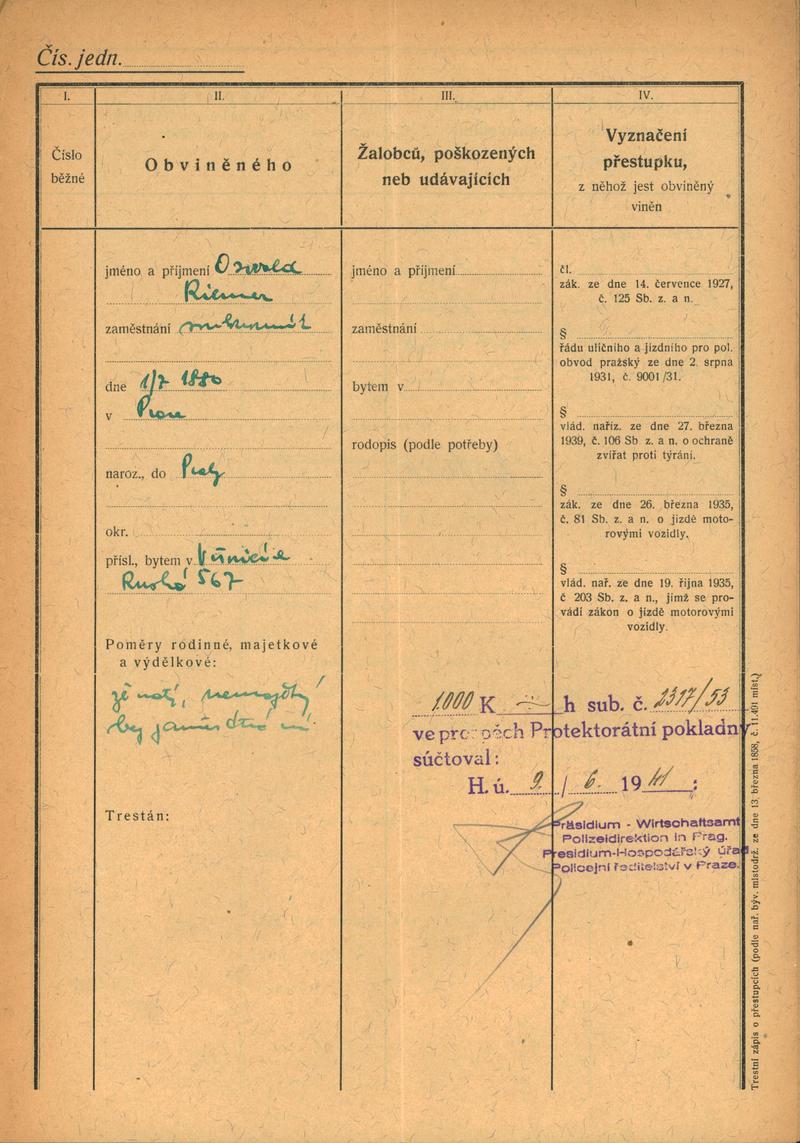 Čís. jedn.
I.
II.
III.
IV.
Číslo
běžné
Obviněného
Žalobců, poškozených
neb udávajících
Vyznačení
přestupku,
z něhož jest obviněný
viněn
jméno a příjmení
zaměstnání
dne 1/7 1880
v
naroz., do
okr.
přísl., bytem v
Ruská 567
Poměry rodinné, majetkové
a výdělkové:
Trestán:
jméno a příjmení
zaměstnání
bytem v
rodopis (podle potřeby)
čl.
zák. ze dne 14. července 1927,
č. 125 Sb. z. a n.
§
řádu uličního a jízdního pro pol.
obvod pražský ze dne 2. srpna
1931, č. 9001/31.
§
vlád. naříz. ze dne 27. března
1939, č. 106 Sb. z. a n. o ochraně
zvířat proti týrání.
§
zák. ze dne 26. března 1935,
č. 81 Sb. z. a n. o jízdě moto-
rovými vozidly.
§
vlád. nař. ze dne 19. října 1935,
č 203 Sb. z. a n., jímž se pro-
vádí zákon o jízdě motorovými
vozidly.
1000 K h sub. č. 2317/53
ve prospěch Protektorátní pokladny
súčtoval:
H. ú. 9. / 6. 1941 :
Präsidium - Wirtschaftsamt
Polizeidirektion in Prag.
Presidium-Hospodářský úřad
Policejní ředitelství v Praze.
Trestní zápis o přestupcích (podle nař. býv. místodrž. ze dne 13. března 1858, č. 11.491 míst.)